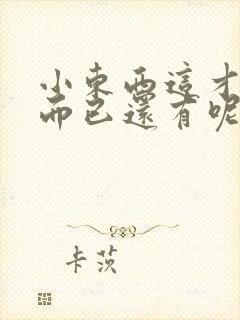 小東西這才
而已還有呢
卡茨